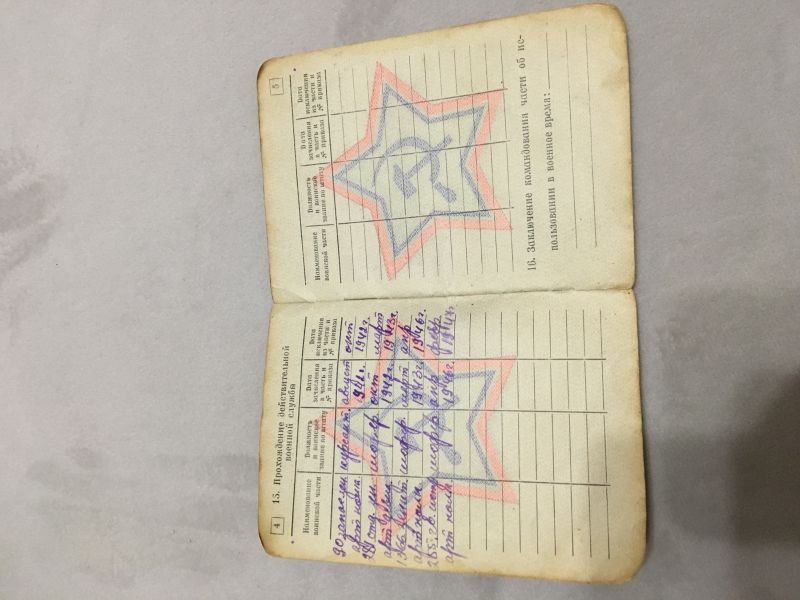 4
15. Прохождение действительной
военной службы
Наименование
воинской части
Должность
и воинское
звание по штату
Дата
зачисления
в часть и
№ приказа
Дата
исключения
из части и
№ приказа
90 курсант. август окт
арт 1942г. 1942г.
шофер окт март
арт 1942г. 1943г.
1366 зенит шофер март апр
арт 1943г. 1946г.
шофер апр февр
арт 1946г. 1947г.
5
Наименование
воинской части
Должность
и воинское
звание по штату
Дата
зачисления
в часть и
№ приказа
Дата
исключения
из части и
№ приказа
16. Заключение командования части об ис-
пользовании в военное время: